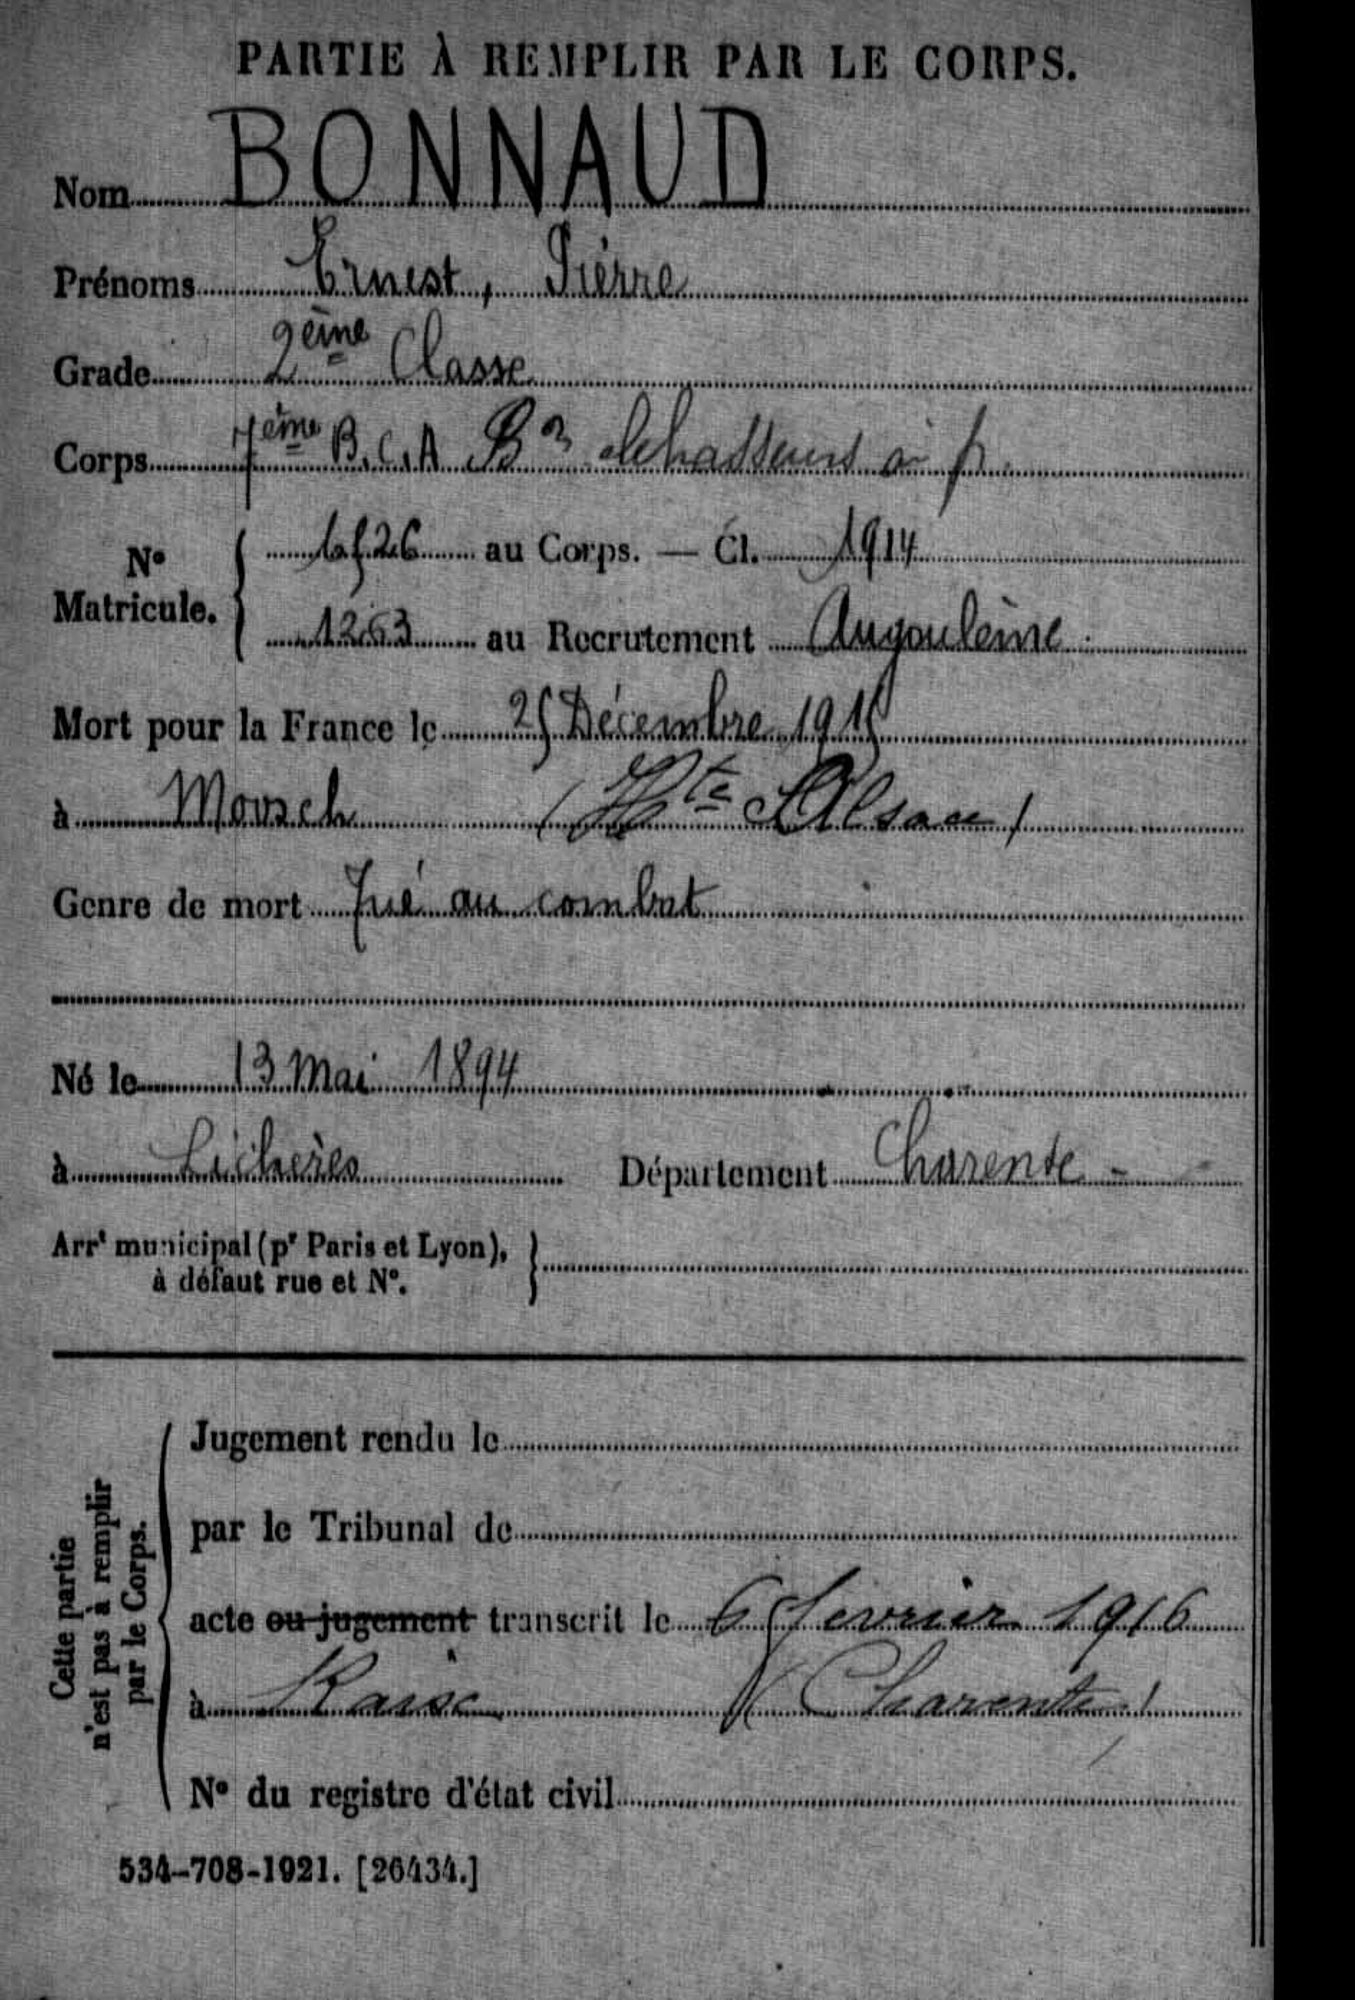 PARTIE À REMPLIR PAR LE CORPS.
Nom BONNAUD
Prénoms Ernest, Pierre
Grade 2ème Classe
Corps 7ème B.C.A Bon de chasseurs à p.
N° Matricule. 6526 au Corps. — Cl. 1914
1263 au Recrutement Angoulême.
Mort pour la France le 25 Décembre 1915
à Moosch (Hte Alsace)
Genre de mort Tué au combat
Né le 13 Mai 1894
à Lichères Département Charente -
Arrt municipal (pr Paris et Lyon),
à défaut rue et N°.
Cette partie
n'est pas à remplir
par le Corps.
Jugement rendu le
par le Tribunal de
acte ou jugement transcrit le 6 février 1916
à (Charente)
N° du registre d'état civil
534-708-1921. [26434.]